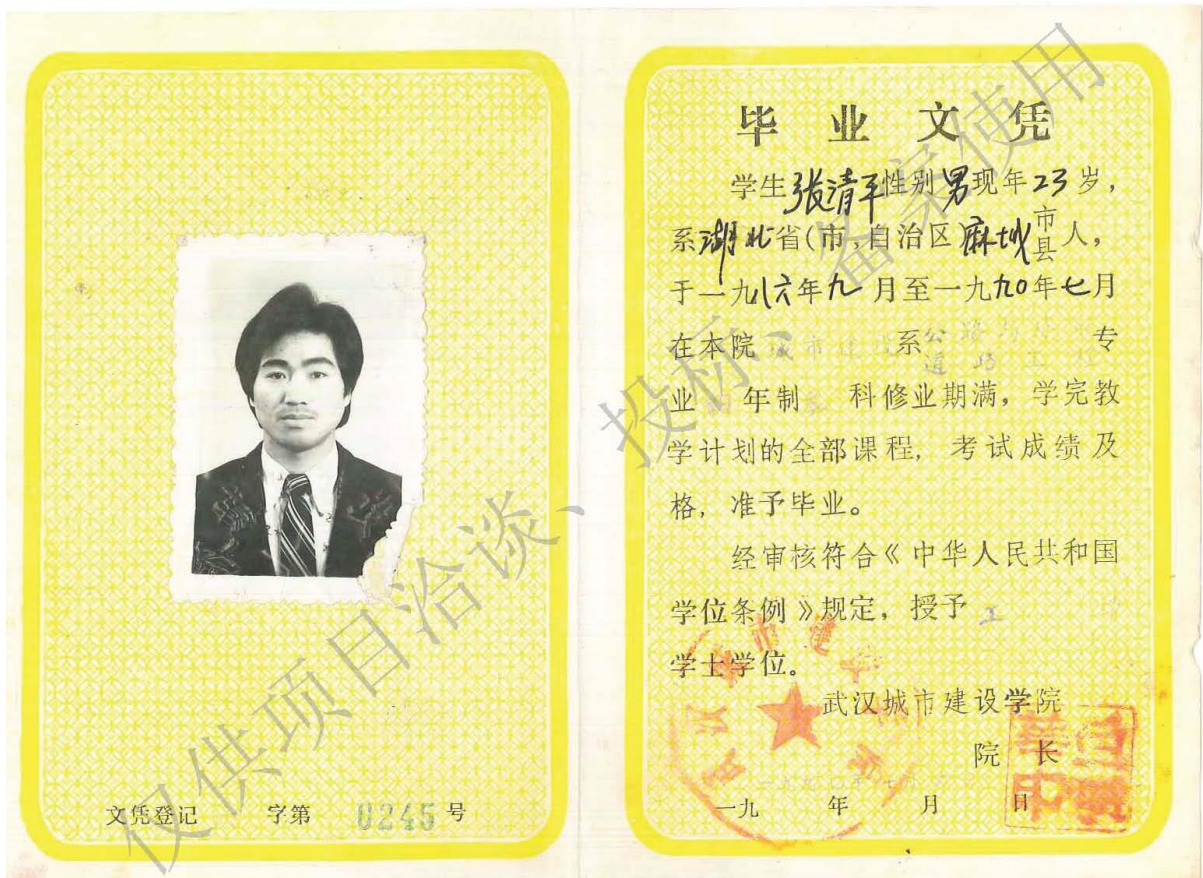 文凭登记 字第 0245 号
毕业文凭
学生张清平性别男现年23岁,
系湖北省(市,自治区)麻城市县人,
于一九八六年九月至一九九0年七月
在本院城市建设系公路与城市道路工程专
业 年制 科修业期满,学完教
学计划的全部课程,考试成绩及
格,准予毕业。
经审核符合《中华人民共和国
学位条例》规定,授予工
学士学位。
武汉城市建设学院
院长
一九 年 月 日
仅供项目洽谈、投标、备案使用